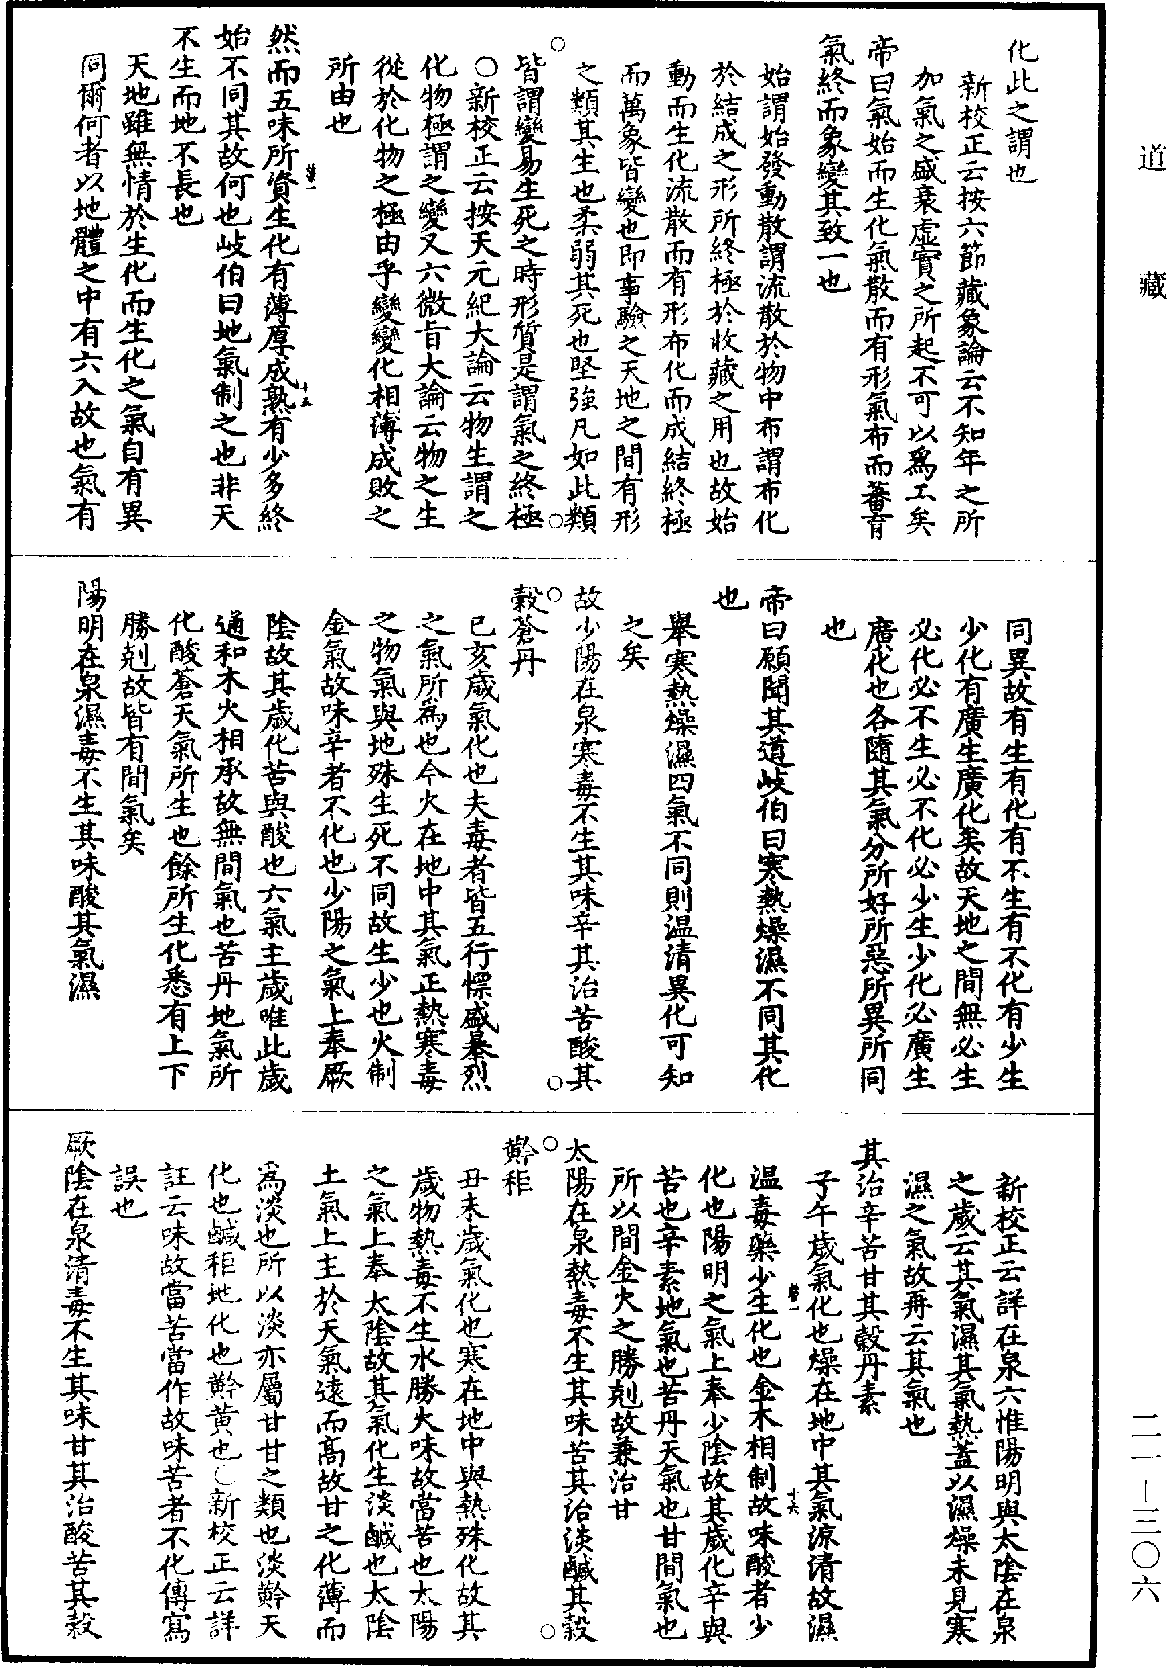 道藏
化此之謂也
新校正云按六節藏象論云不知年之所
加氣之盛衰虛實之所起不可以爲工矣
帝曰氣始而生化氣散而有形氣布而蕃育
氣終而象變其致一也
始謂始發動散謂流散於物中布謂布化
於結成之形所終極於收藏之用也故始
動而生化流散而有形布化而成結終極
而萬象皆變也即事驗之天地之間有形
之類其生也柔弱其死也堅強凡如此類
皆謂變易生死之時形質是謂氣之終極
○新校正云按天元紀大論云物生謂之
化物極謂之變又六微旨大論云物之生
從於化物之極由乎變變化相薄成敗之
所由也
然而五味所資生化有薄厚成熟有少多終
始不同其故何也岐伯曰地氣制之也非天
不生而地不長也
天地雖無情於生化而生化之氣自有異
同爾何者以地體之中有六入故也氣有
同異故有生有化有不生有不化有少生
少化有廣生廣化矣故天地之間無必生
必化必不生必不化必少生少化必廣生
廣化也各隨其氣分所好所惡所異所同
也
帝曰願聞其道岐伯曰寒熱燥濕不同其化
也
舉寒熱燥濕四氣不同則温清異化可知
之矣
故少陽在泉寒毒不生其味辛其治苦酸其
穀蒼丹
已亥歲氣化也夫毒者皆五行慓盛暴烈
之氣所爲也今火在地中其氣正熱寒毒
之物氣與地殊生死不同故生少也火制
金氣故味辛者不化也少陽之氣上奉厥
陰故其歲化苦與酸也六氣主歲唯此歲
通和木火相承故無間氣也苦丹地氣所
化酸蒼天氣所生也餘所生化悉有上下
勝剋故皆有間氣矣
陽明在泉濕毒不生其味酸其氣濕
新校正云詳在泉六惟陽明與太陰在泉
之歲云其氣濕其氣熱蓋以濕燥未見寒
濕之氣故再云其氣也
其治辛苦甘其穀丹素
子午歲氣化也燥在地中其氣涼清故濕
温毒藥少生化也金木相制故味酸者少
化也陽明之氣上奉少陰故其歲化辛與
苦也辛素地氣也苦丹天氣也甘間氣也
所以間金火之勝剋故兼治甘
太陽在泉熱毒不生其味苦其治淡鹹其穀
黅秬
丑未歲氣化也寒在地中與熱殊化故其
歲物熱毒不生水勝火味故當苦也太陽
之氣上奉太陰故其氣化生淡鹹也太陰
土氣上主於天氣遠而高故甘之化薄而
爲淡也所以淡亦屬甘甘之類也淡黅天
化也鹹秬地化也黅黄也○新校正云詳
註云味故當苦當作故味苦者不化傳寫
誤也
厥陰在泉清毒不生其味甘其治酸苦其穀
二一—三〇六